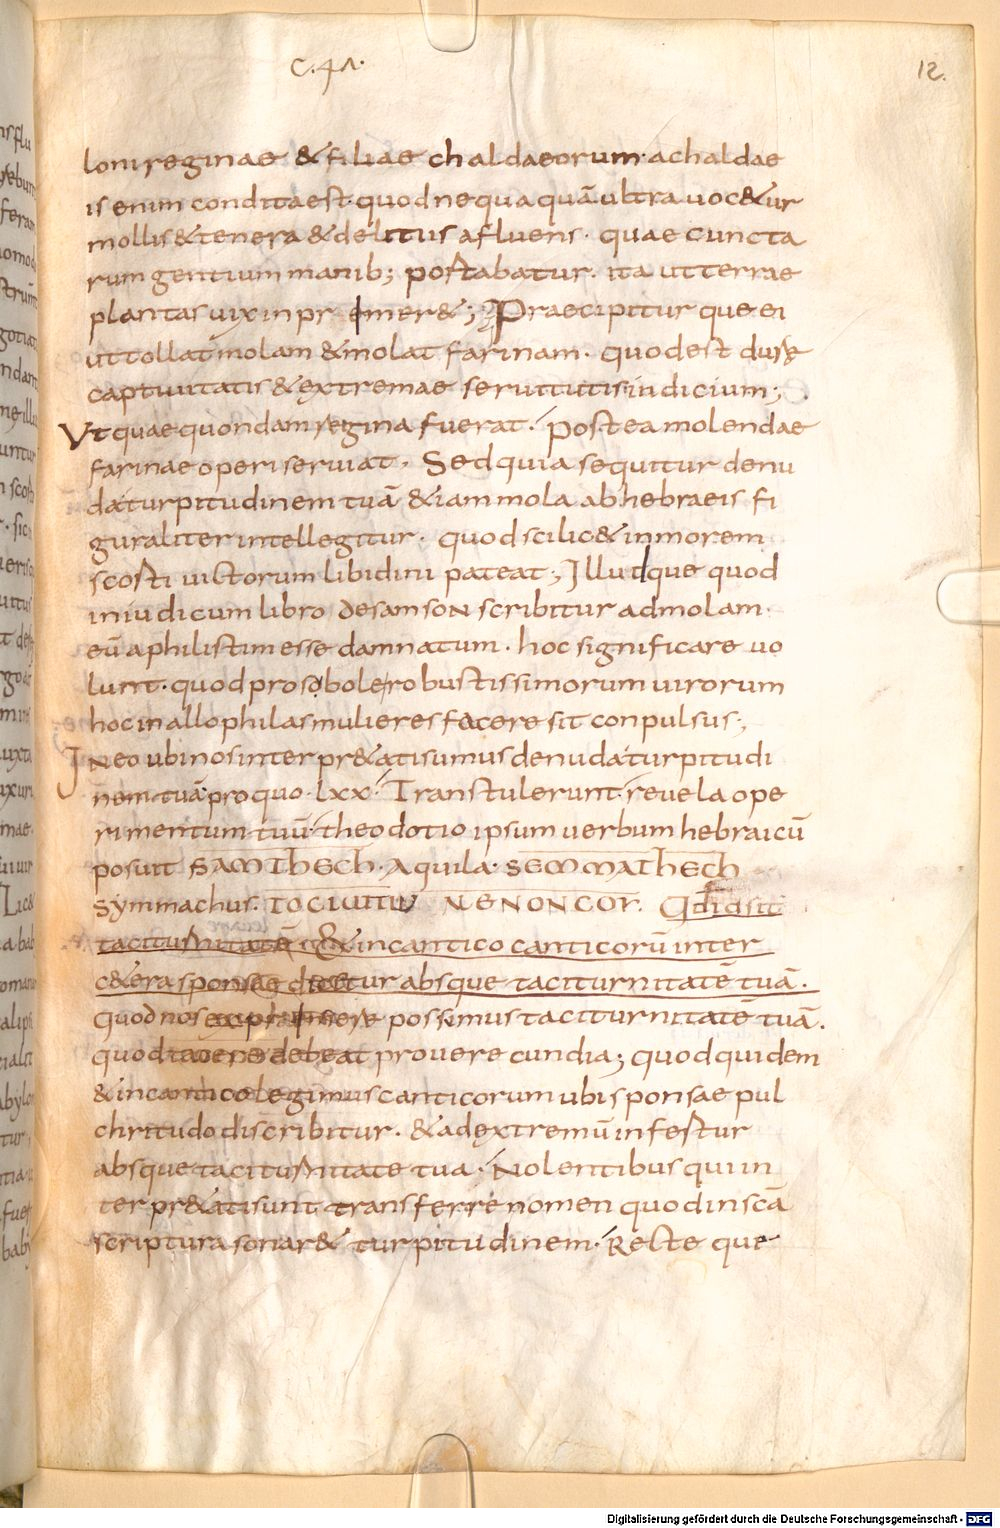 C.47.
12.
loni reginae & filiae chaldaeorum. achaldae
is enim condita est. quod nequaquā ultra uoc&ur
mollis & tenera & delitiis afluens. quae cuncta
rum gentium manib; portabatur. ita ut terrae
plantas uix inpr imer&; Praecipitur que ei
ut tollat molam & molat farinam. quod est durae
captiuitatis & extremae seruitutis iudicium;
Ut quae quondam regina fuerat. postea molendae
farinae operi seruiat. Sed quia sequitur denu
da turpitudinem tuā & iam mola abhebraeis fi
guraliter intellegitur. quod scilic& inmorem
scorti uictorum libidini pateat; Illudque quod
in iudicum libro de samson scribitur ad molam
eū a philistim esse damnatum. hoc significare uo
lunt. quod pro sobole robustissimorum uirorum
hoc in allophilas mulieres facere sit conpulsus;
In eo ubi nos interpr&ati sumus denuda turpitudi
nem tuā. pro quo. lxx. Transtulerunt. reuela ope
rimentum tuū. theodotio ipsum uerbum hebraicū
posuit SAMTHECH. Aquila. SEMMATHECH
Symmachus. TOCIUITIU NENONCOR. Qd
taciturnitatē & in cantico canticorū inter
c&era sponsae dicitur absque taciturnitatē tuā.
quod nos possimus taciturnitatē tuā.
quod tacere debeat prouerecundia; quod quidem
& in cantico legimus canticorum ubi sponsae pul
chritudo discribitur. & ad extremū infertur
absque taciturnitate tua. Nolentibus qui in
terpr&ati sunt transferre nomen quod in scā
scriptura sonar& turpitudinem. Recte que
Digitalisierung gefördert durch die Deutsche Forschungsgemeinschaft - DFG